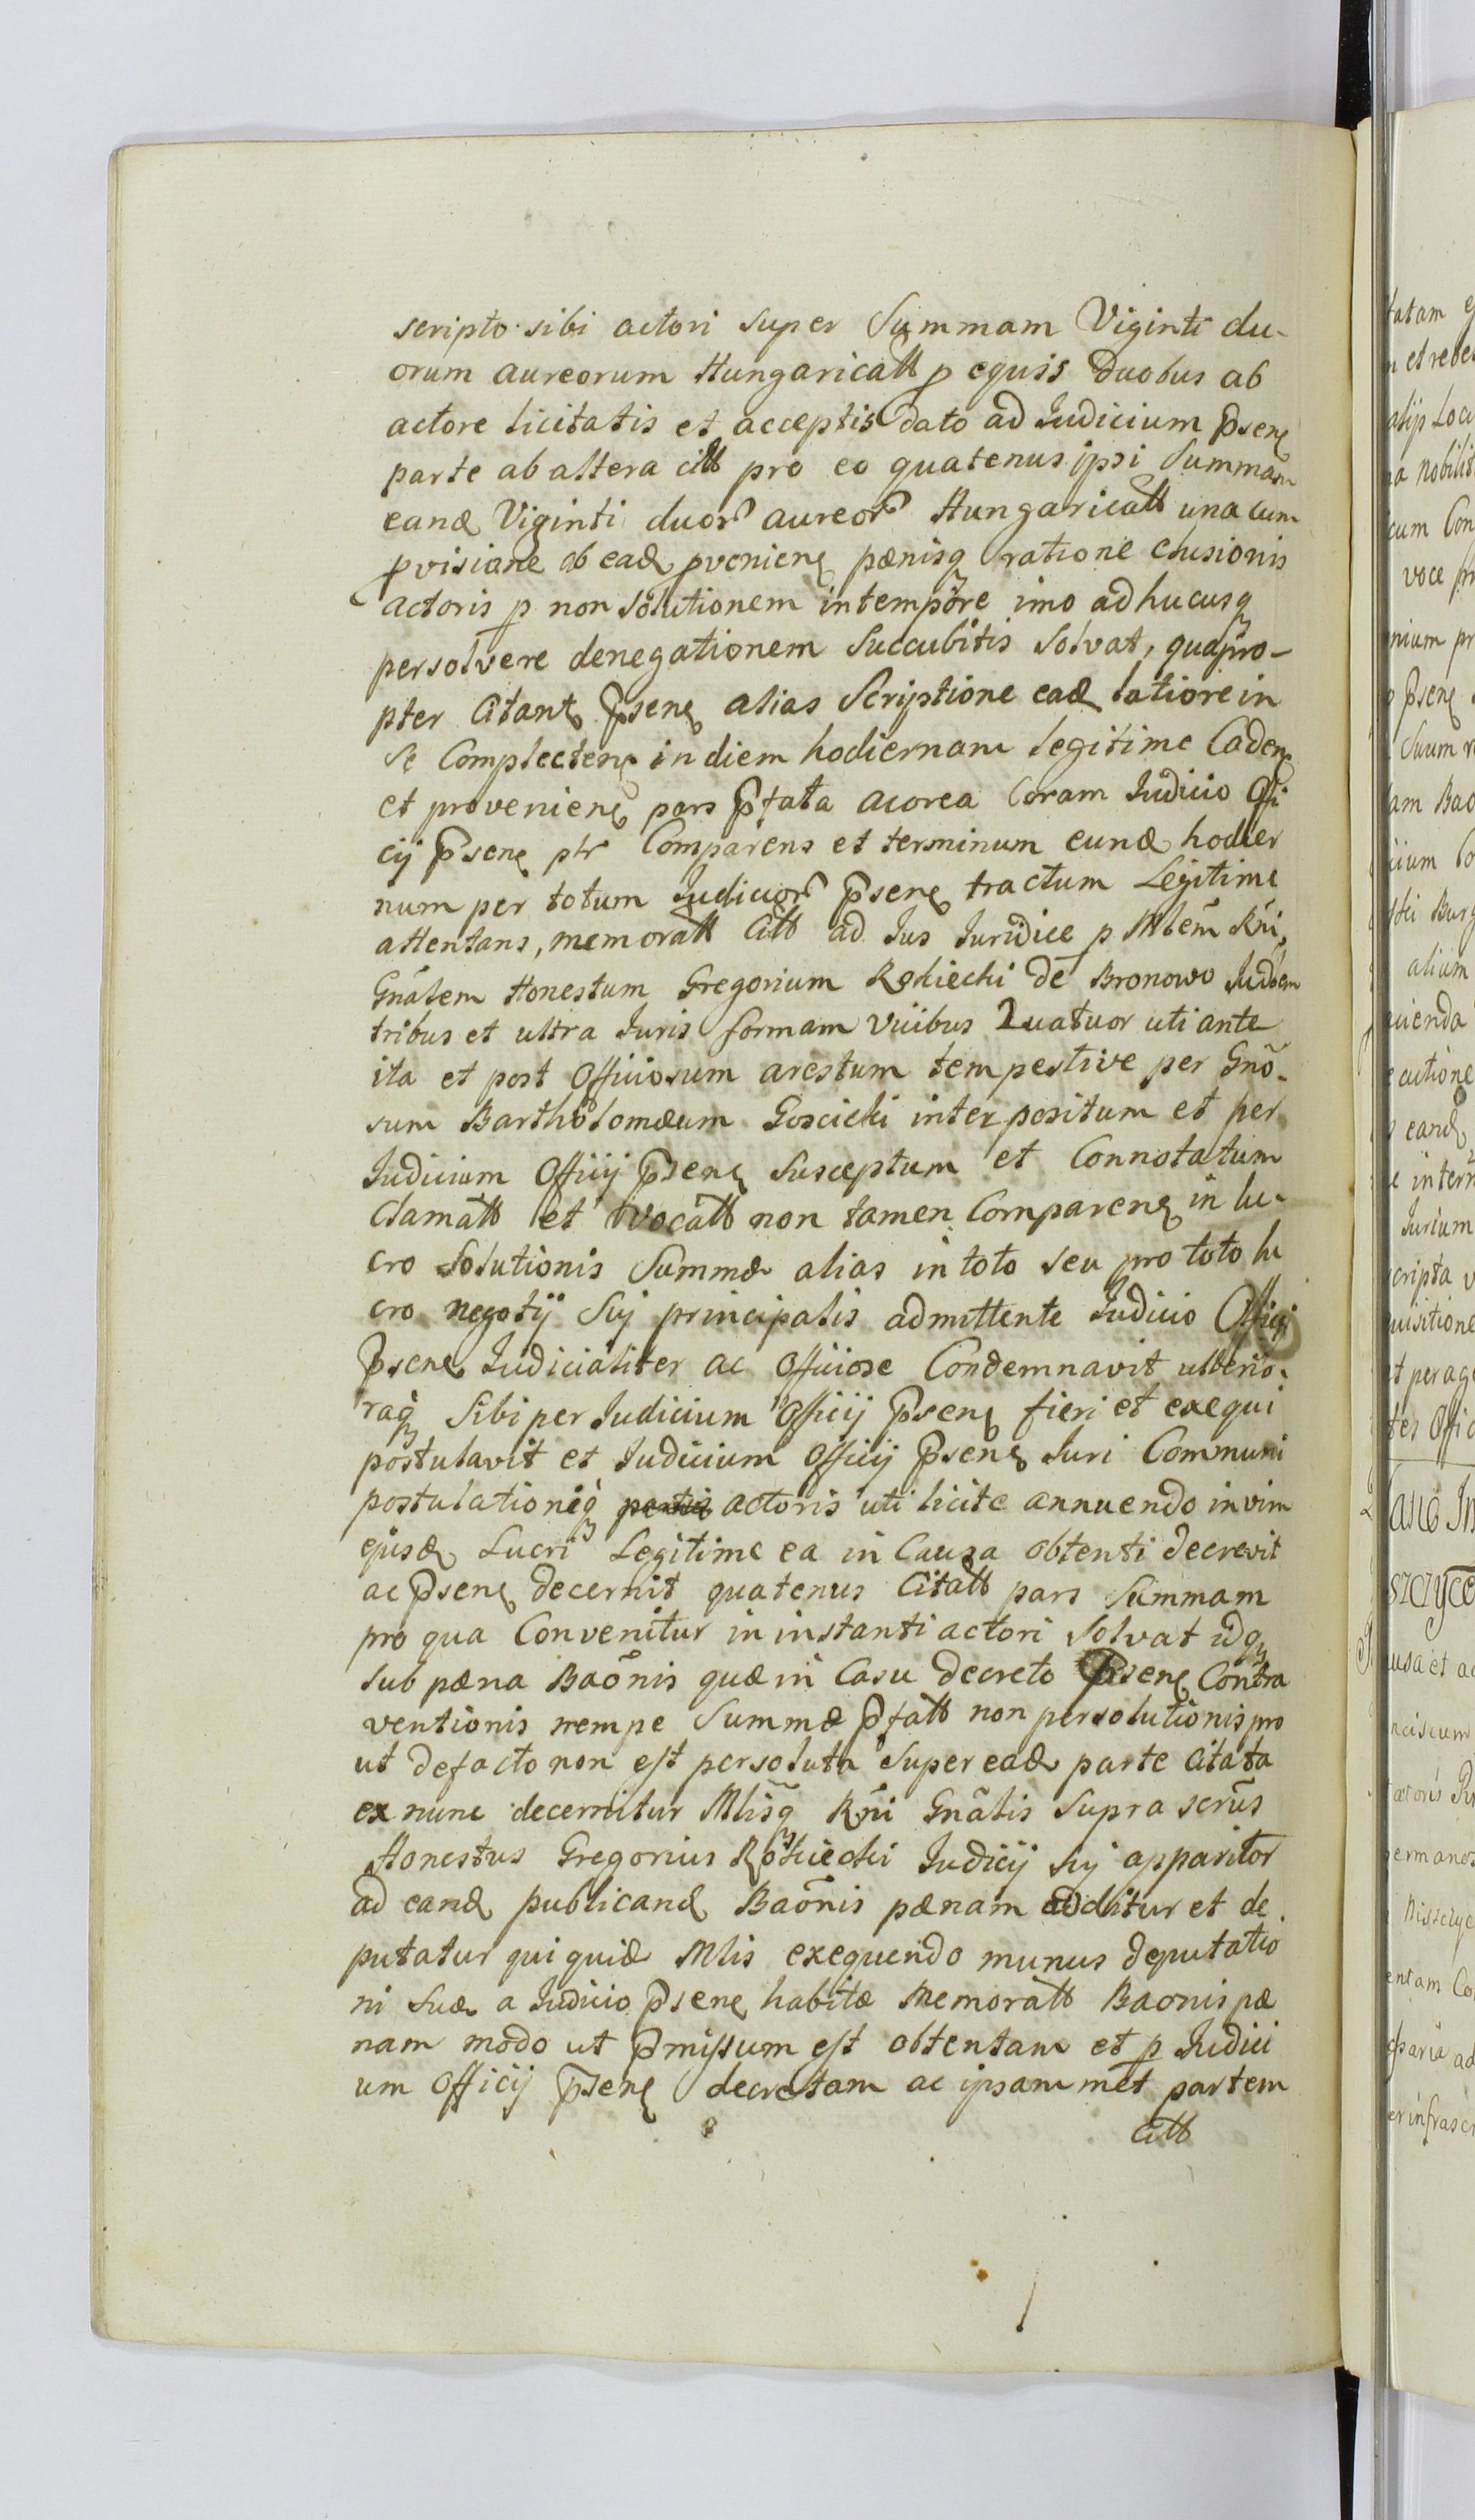 scripto sibi actori super Summam Viginti du-
orum aureorum Hungaricall p equis Duobus ab
actore licitatis et acceptis dato ad Iudicium Psen
parte ab altera citt pro eo quatenus ipsi Summam
eand Viginti duor aureor Hungaricall una cum
pvisiane ab ead pvenien pænisq ratione elusionis
actoris p non solutionem intempore imo adhucusq
persolvere denegationem Succubitis Solvat, quapro-
pter Citant Psen alias Scriptione ead latiore in
se Complecten in diem hodiernam legitime Caden
et provenien pars Pfata acorea Coram Iudicio Offi
cij Psen ptr Comparens et terminum eund hodier
num per totum Iudicior Psen tractum Legitime
attentans, memorall Citt ad Ius Iuridice p Mlem Rni,
Gnalem Honestum Gregorium Rokiecki de Bronowo
tribus et ultra Iuris formam vicibus Quatuor uti ante
ita et post Officiosum arestum tempestive per Gno-
sum Bartholomæum Goscicki interpositum et per
Iudicium Officij Psen Susceptum et Connotatum
Clamatt et Vocatt non tamen Comparen in lu-
cro Solutionis Summæ alias in toto seu pro toto lu
cro negotij Sui principalis admittente Iudicio Officij
Psen Iudicialiter ac Officiose Condemnavit ulterio-
raq Sibi per Iudicium Officij Psen fieri et exequi
postulavit et Iudicium Officij Psen Iuri Communi
postulationiq partis actoris uti licite annuendo in vim
ejusd Lucri Legitime ea in Causa obtenti decrevit
ac Psen decernit quatenus Citatt pars Summam
pro qua Convenitur in instanti actori Solvat idq
sub pæna Baonis quæ in Casu decreto Psen Contra
ventionis nempe Summæ Pfatt non persolutionis pro
ut defacto non est persoluta Super ead parte Citata
ex nunc decernitur Mlisq Rni Gnalis Supra scrus
Honestus Gregorius Rokiecki Iudicij Sui apparitor
ad eand publicand Baonis pænam additur et de
putatur qui quid Mlis exequendo munus deputatio
ni Suæ a Iudicio Psen habitæ Memoratt Baonis pæ
nam modo ut Pmissum est obtentam et p Iudici
um Officij Psen decretam ac ipsammet partem
Citt